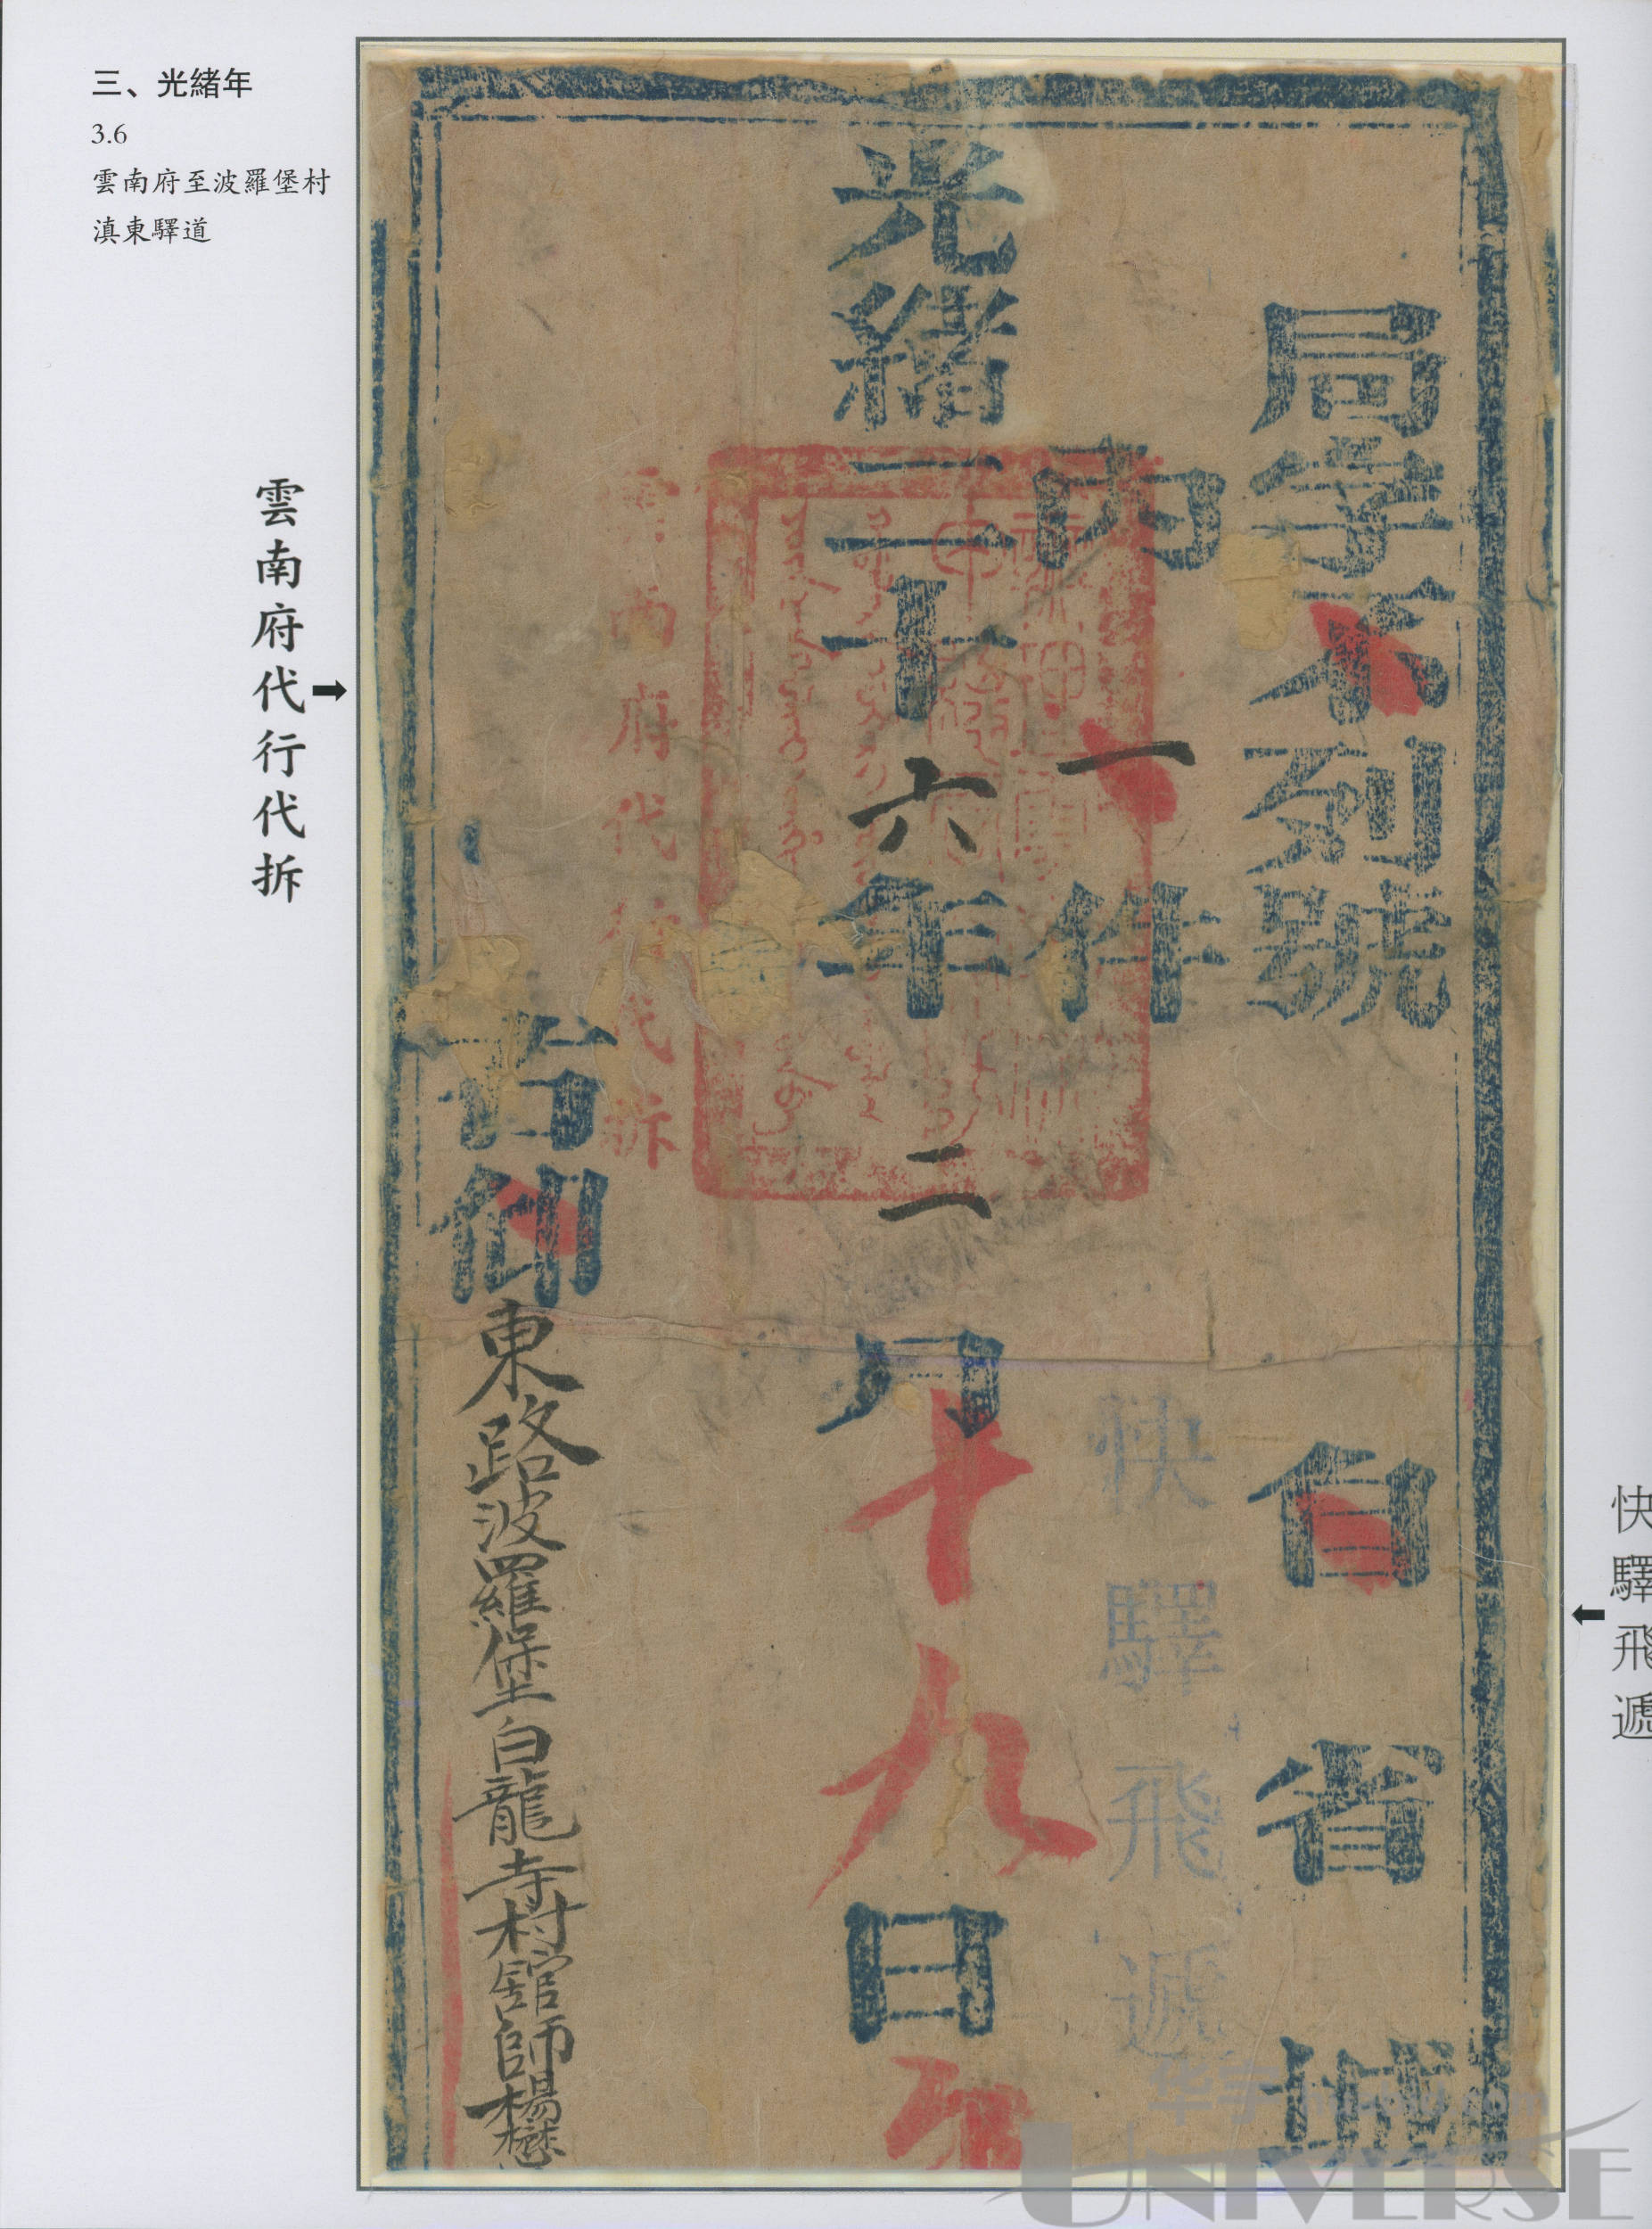 三、光緒年
3.6
雲南府至波羅堡村
滇東驛道
雲南府代行代拆
快驛飛遞
局字不列號
自省城
內一件
快驛飛遞
光緒二十六年二月十九日
雲南府代行代拆
右仰東路波羅堡白龍寺村舘師楊懋
UNIVERSE